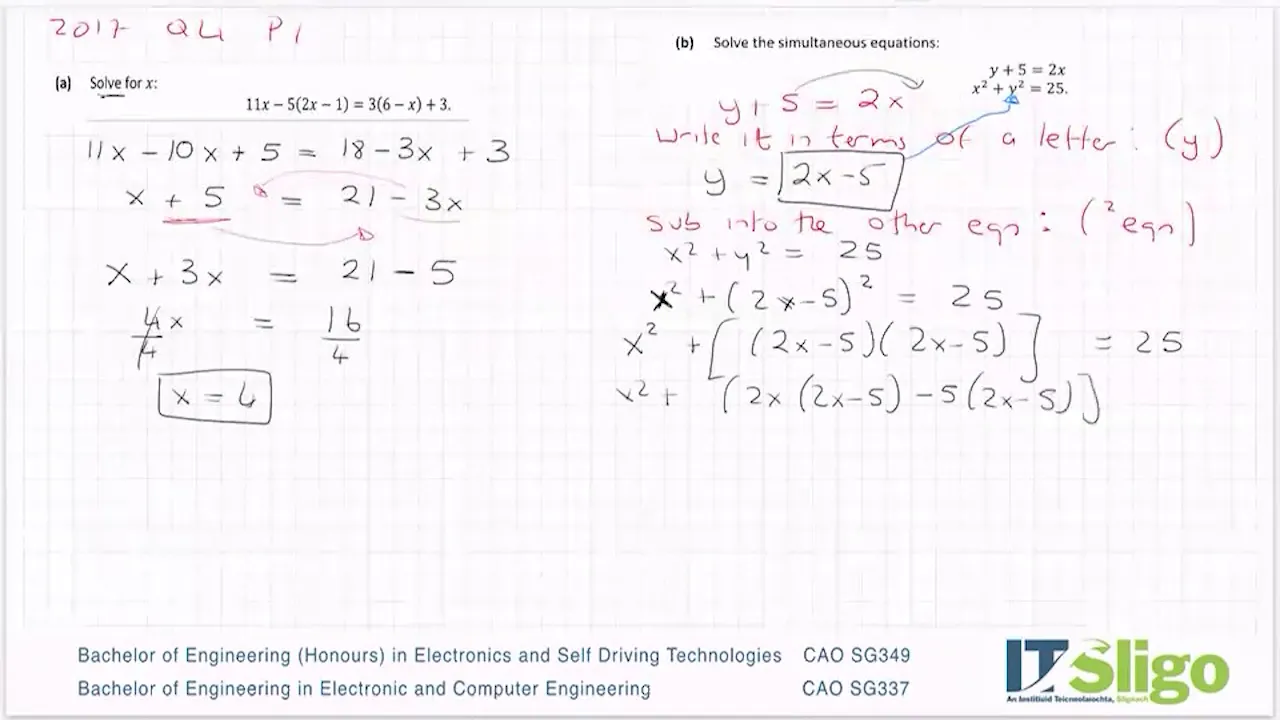 2017 Q4 P1
(a) Solve for x:
11x − 5(2x − 1) = 3(6 − x) + 3.
11x − 10x + 5 = 18 − 3x + 3
x + 5 = 21 − 3x
x + 3x = 21 − 5
4x/4 = 16/4
x = 4
(b) Solve the simultaneous equations:
y + 5 = 2x
x² + y² = 25.
y + 5 = 2x
Write it in terms of a letter : (y)
y = 2x − 5
sub into the other eqn : (² eqn)
x² + y² = 25
x² + (2x − 5)² = 25
x² + [(2x − 5)(2x − 5)] = 25
x² + (2x (2x − 5) − 5(2x − 5)]
Bachelor of Engineering (Honours) in Electronics and Self Driving Technologies CAO SG349
Bachelor of Engineering in Electronic and Computer Engineering CAO SG337
IT Sligo
An Institiúid Teicneolaíochta, Sligeach